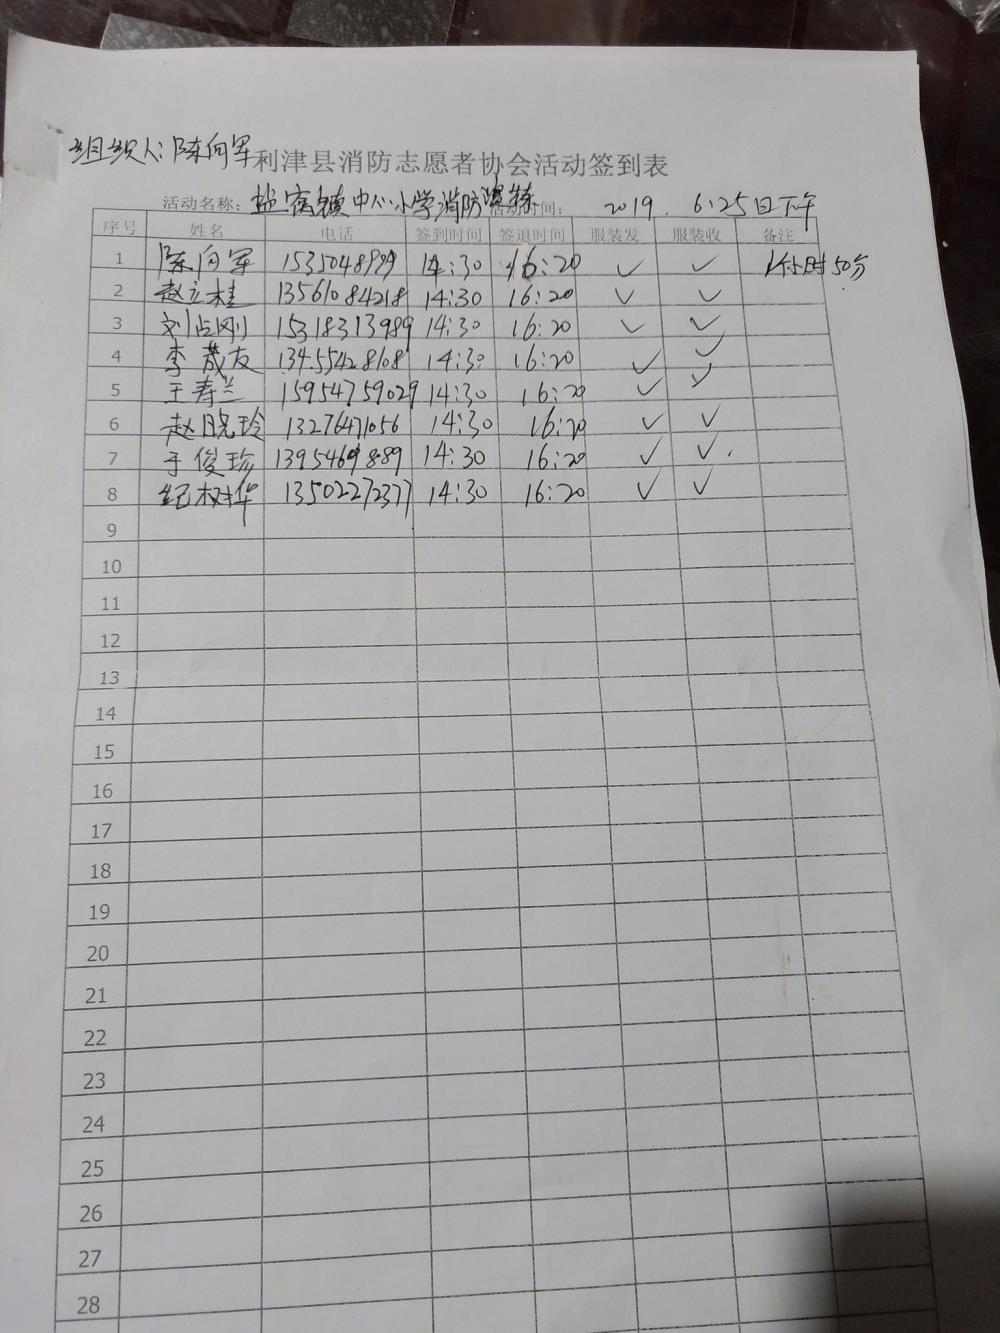 组织人:陈向军
利津县消防志愿者协会活动签到表
活动名称: 盐窝镇中心小学消防演练 活动时间: 2019. 6.25日下午
序号 姓名 电话 签到时间 签退时间 服装发 服装收 备注
1 陈向军 14:30 16:20 ✓ ✓ 1个小时50分
2 赵立桂 13561084218 14:30 16:20 ✓ ✓
3 刘占刚 15318313989 14:30 16:20 ✓ ✓
4 李茂友 13455428108 14:30 16:20 ✓ ✓
5 王寿兰 15954759029 14:30 16:20 ✓ ✓
6 赵晓玲 13276471056 14:30 16:20 ✓ ✓
7 于俊珍 14:30 16:20 ✓ ✓
8 纪树华 13502272377 14:30 16:20 ✓ ✓
9
10
11
12
13
14
15
16
17
18
19
20
21
22
23
24
25
26
27
28